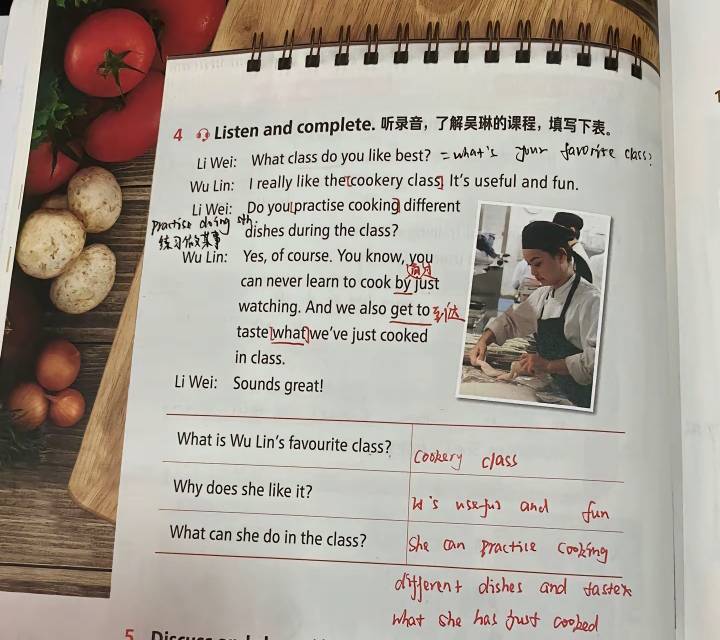 4 Listen and complete. 听录音，了解吴琳的课程，填写下表。
Li Wei: What class do you like best? = what's your favorite class?
Wu Lin: I really like the cookery class. It's useful and fun.
Li Wei: Do you practise cooking different
practise doing sth.
练习做某事
dishes during the class?
Wu Lin: Yes, of course. You know, you
通过
can never learn to cook by just
watching. And we also get to 到达
taste what we've just cooked
in class.
Li Wei: Sounds great!
What is Wu Lin's favourite class? Cookery class
Why does she like it? It's useful and fun
What can she do in the class? She can practice cooking
different dishes and tastes
what she has just cooked
5